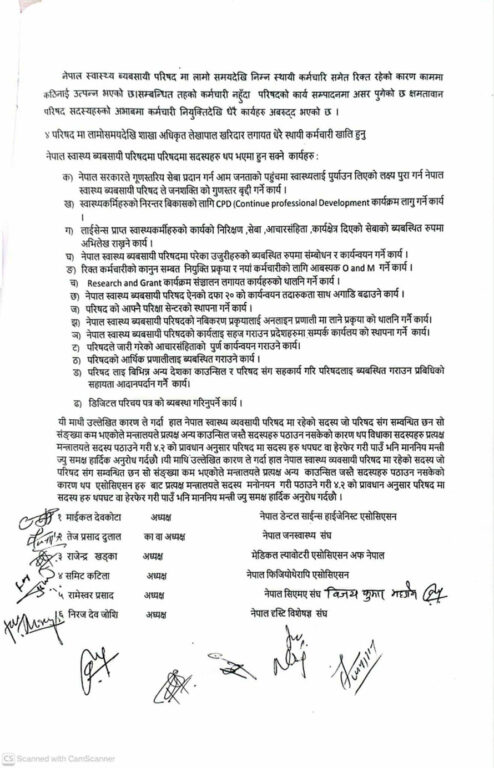 नेपाल स्वास्थ्य ब्यबसायी परिषद मा लामो समयदेखि निम्न स्थायी कर्मचारि समेत रिक्त रहेको कारण काममा
कठिनाई उत्पन्न भएको छ।सम्बन्धित तहको कर्मचारी नहुँदा परिषदको कार्य सम्पादनमा असर पुगेको छ क्षमतावान
परिषद सदस्यहरुको अभाबमा कर्मचारी नियुक्तिदेखि धेरै कार्यहरु अबरुद्द भएको छ ।
४ परिषद मा लामोसमयदेखि शाखा अधिकृत लेखापाल खरिदार लगायत धेरै स्थायी कर्मचारी खालि हुनु
नेपाल स्वास्थ्य ब्यबसायी परिषदमा परिषदमा सदस्यहरु थप भएमा हुन सक्ने कार्यहरु :
क) नेपाल सरकारले गूणस्तरिय सेबा प्रदान गर्न आम जनताको पहुंचमा स्वास्थ्यलाई पुर्याउन लिएको लक्ष्य पुरा गर्न नेपाल
स्वास्थ्य ब्यबसायी परिषद ले जनशक्ति को गुणस्तर बृद्दी गर्ने कार्य ।
ख) स्वास्थ्यकर्मिहरुको निरन्तर बिकासको लागि CPD (Continue professional Development कार्यक्रम लागु गर्ने कार्य
।
ग) लाईसेन्स प्राप्त स्वास्थ्यकर्मीहरुको कार्यको निरिक्षण ,सेबा ,आचारसंहिता ,कार्यक्षेत्र दिएको सेबाको ब्यबस्थित रुपमा
अभिलेख राख्ने कार्य ।
घ) नेपाल स्वास्थ्य ब्यबसायी परिषदमा परेका उजुरीहरुको ब्यबस्थित रुपमा संम्बोधन र कार्यन्वयन गर्ने कार्य ।
ङ) रिक्त कर्मचारीको कानुन सम्बत नियुक्ति प्रकृया र नयां कर्मचारी को लागि आबस्यक O and M गर्ने कार्य ।
च) Research and Grant कार्यक्रम संञ्चालन लगायत कार्यहरुको थालनि गर्ने कार्य ।
छ) नेपाल स्वास्थ्य ब्यबसायी परिषद ऐनको दफा २० को कार्यन्वयन तदारुकता साथ अगाडि बढाउने कार्य ।
ज) परिषद को आफ्नै परिक्षा सेन्टरको स्थापना गर्ने कार्य ।
झ) नेपाल स्वास्थ्य ब्यबसायी परिषदको नबिकरण प्रकृयालाई अनलाइन प्रणाली मा लाने प्रकृया को थालनि गर्ने कार्य।
ञ) नेपाल स्वास्थ्य ब्यबसायी परिषदको कार्यलाइ सहज गराउन प्रदेशहरुमा सम्पर्क कार्यलय को स्थापना गर्ने कार्य ।
ट) परिषदले जारी गरेको आचारसंहिताको पुर्ण कार्यन्वयन गराउने कार्य।
ठ) परिषदको आर्थिक प्रणालीलाइ ब्यबस्थित गराउने कार्य ।
ड) परिषद लाइ बिभिन्न अन्य देशका काउन्सिल र परिषद संग सहकार्य गरि परिषदलाइ ब्यबस्थित गराउन प्रबिधिको
सहायता आदानप्रदान गर्ने कार्य।
ढ) डिजिटल परिचय पत्र को ब्यबस्था गरिनुपर्ने कार्य ।
यी माथी उल्लेखित कारण ले गर्दा हाल नेपाल स्वास्थ्य व्यवसायी परिषद मा रहेको सदस्य जो परिषद संग सम्वन्धित छन सो
संङ्ख्या कम भएकोले मन्त्रालयले प्रत्यक्ष अन्य काउन्सील जस्तै सदस्यहरु पठाउन नसकेको कारण थप विधाका सदस्यहरु प्रत्यक्ष
मन्त्रालयले सदस्य पठाउने गरी ४.२ को प्रावधान अनुसार परिषद मा सदस्य हरु थपघट वा हेरफेर गरी पाउँ भनि माननिय मन्त्री
ज्यु समक्ष हार्दिक अनुरोध गर्दछौ ।यी माथि उल्लेखित कारण ले गर्दा हाल नेपाल स्वास्थ्य व्यवसायी परिषद मा रहेको सदस्य जो
परिषद संग सम्वन्धित छन सो संङ्ख्या कम भएकाले मन्त्रालयले प्रत्यक्ष अन्य काउन्सील जस्तै सदस्यहरु पठाउन नसकेको
कारण थप एसोसिएसन हरु बाट प्रत्यक्ष मन्त्रालयले सदस्य मनोनयन गरी पठाउने गरी ४.२ को प्रावधान अनुसार परिषद मा
सदस्य हरु थपघट वा हेरफेर गरी पाउँ भनि माननिय मन्त्री ज्यु समक्ष हार्दिक अनुरोध गर्दछौ ।
१ माईकल देवकोटा अध्यक्ष नेपाल डेन्टल साईन्स हाईजेनिस्ट एसोसिएसन
२ तेज प्रसाद दुलाल का वा अध्यक्ष नेपाल जनस्वास्थ्य संघ
३ राजेन्द्र खड्का अध्यक्ष मेडिकल ल्यावोटरी एसोसिएसन अफ नेपाल
४ समिट कटिला अध्यक्ष नेपाल फिजियोथेरापि एसोसिएसन
५ रामेस्वर प्रसाद अध्यक्ष नेपाल सिएमए संघ विजय कुमार
६ निरज देव जोशि अध्यक्ष नेपाल दृस्टि विशेषज्ञ संघ
CS Scanned with CamScanner